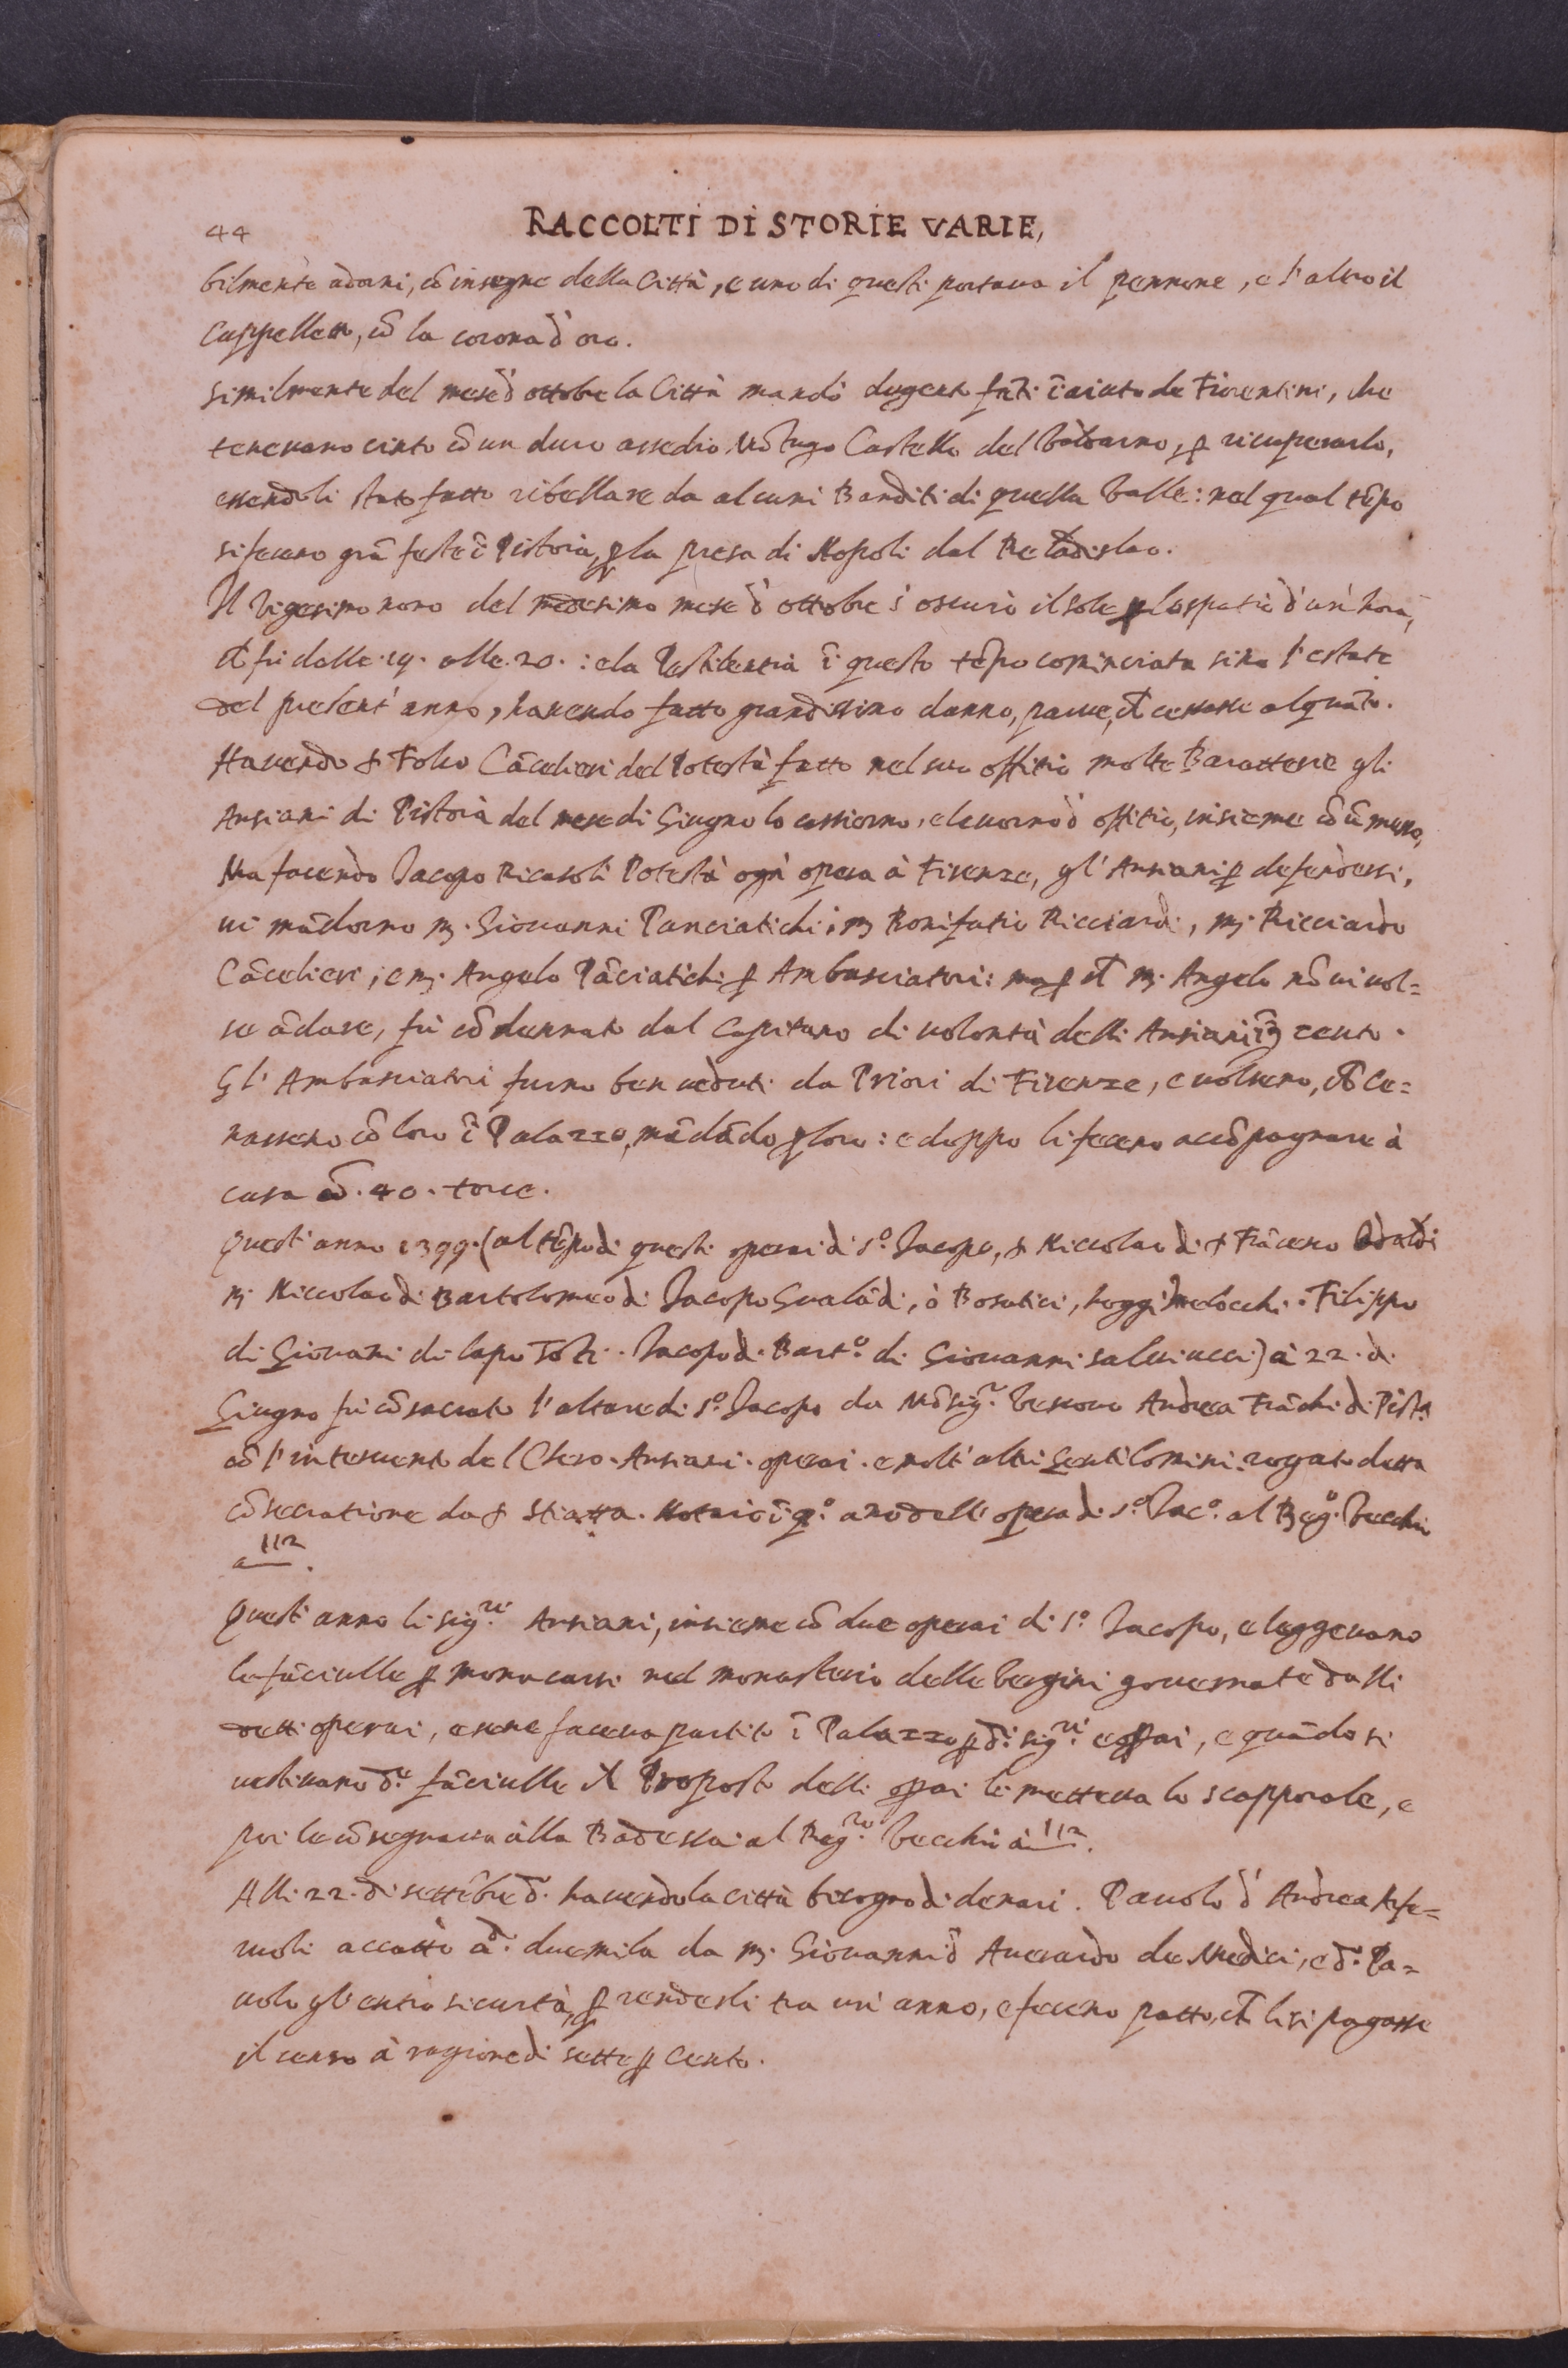 44
RACCOLTI DI STORIE VARIE,
bilmente adorni, cō insegne della Città, e uno di questi portava il pennone, e l'altro il
Cappelletto, cō la corona d'oro.
Similmente del mese d'ottobre la Città mandò dugento fāti ī aiuto de Fiorentini, che
tenevano cinto cō un duro assedio Castello del Valdarno, ꝑ ricuperarlo,
essendoli stato fatto ribellare da alcuni Banditi di quella Valle: nel qual tēpo
si fecero grā feste ī Pistoia, ꝑ la presa di Napoli dal Re Ladislao.
Il Vigesimo nono del medesimo mese d'ottobre s'oscurò il sole ꝑ lo spatio d'un'hora,
che fù dalle .19. alle .20. : e la Pestilentia ī questo tēpo cominciata sino l'estate
del present'anno, havendo fatto grandissimo danno, parve, che cessasse alquāto.
Havendo Folco Cācelieri del Potestà fatto nel suo offitio molte Baratterie gli
Ansiani di Pistoia del mese di Giugno lo cassorno, e levorno d'offitio, insieme cō ū messo,
Ma facendo Jacopo Ricasoli Potestà ogni opera à Firenze, gl'Ansiani ꝑ defendersi,
vi mādorno m. Giovanni Panciatichi, m. Bonifatio Ricciardi, m. Ricciardo
Cācelieri, e m. Angelo Pāciatichi ꝑ Ambasciatori: ma ꝑ che m. Angelo nō vi vol=
se ādare, fù cōdennato dal Capitano di volontà delli Ansiani ī cento.
Gl'Ambasciatori furno ben veduti da Priori di Firenze, e volsero, che Ce=
nassero cō loro ī Palazzo, mādādo ꝑ loro: e doppo li fecero accōpagnare à
casa cō .40. torce.
Quest'anno 1399. (al tēpo di questi operai di s.º Jacopo, Niccolao di Frācesco
m. Niccolao di Bartolomeo di Jacopo Gualādi, ò Bosatici, hoggi Melocchi. Filippo
di Giovani di Lapo . Jacopo di Bart.º di Giovanni Salviucci) à 22. di
Giugno fù cōsacrato l'altare di s.º Jacopo da Mōsig.r Vescovo Andrea Frāchi di Pist.ª
cō l'intervento del Clero. Ansiani. operai. e molt'altri Gentilomini. rogato detta
cōsecratione da Stiatta. Notaio ī q.º anō dell'opera di s.º Jac.º al Reg.º Vecchio
a 112.
Quest'anno li sig.ri Ansiani, insieme cō due operai di s.º Jacopo, eleggevano
le fāciulle ꝑ monacarsi nel monasterio delle Vergini governate dalli
detti operai, e se ne faceva partito ī Palazzo ꝑ d.i sig.ri e oꝑai, e quādo si
vestivano d.e fāciulle il Proposto delli oꝑai li metteva lo scapporale, e
poi le cōsegnava alla Badessa: al Reg.ro Vecchio à 112.
Alli 22. di settēbre d.º havendo la città bisogno di denari. Pavolo d'Andrea
accattò duemila da m. Giovanni d'Averardo de Medici, e d.º Pa=
volo gl'entrò sicurtà, ꝑ renderli tra un'anno, e fecero patto, che li si pagasse
il censo à ragione di sette ꝑ Cento.